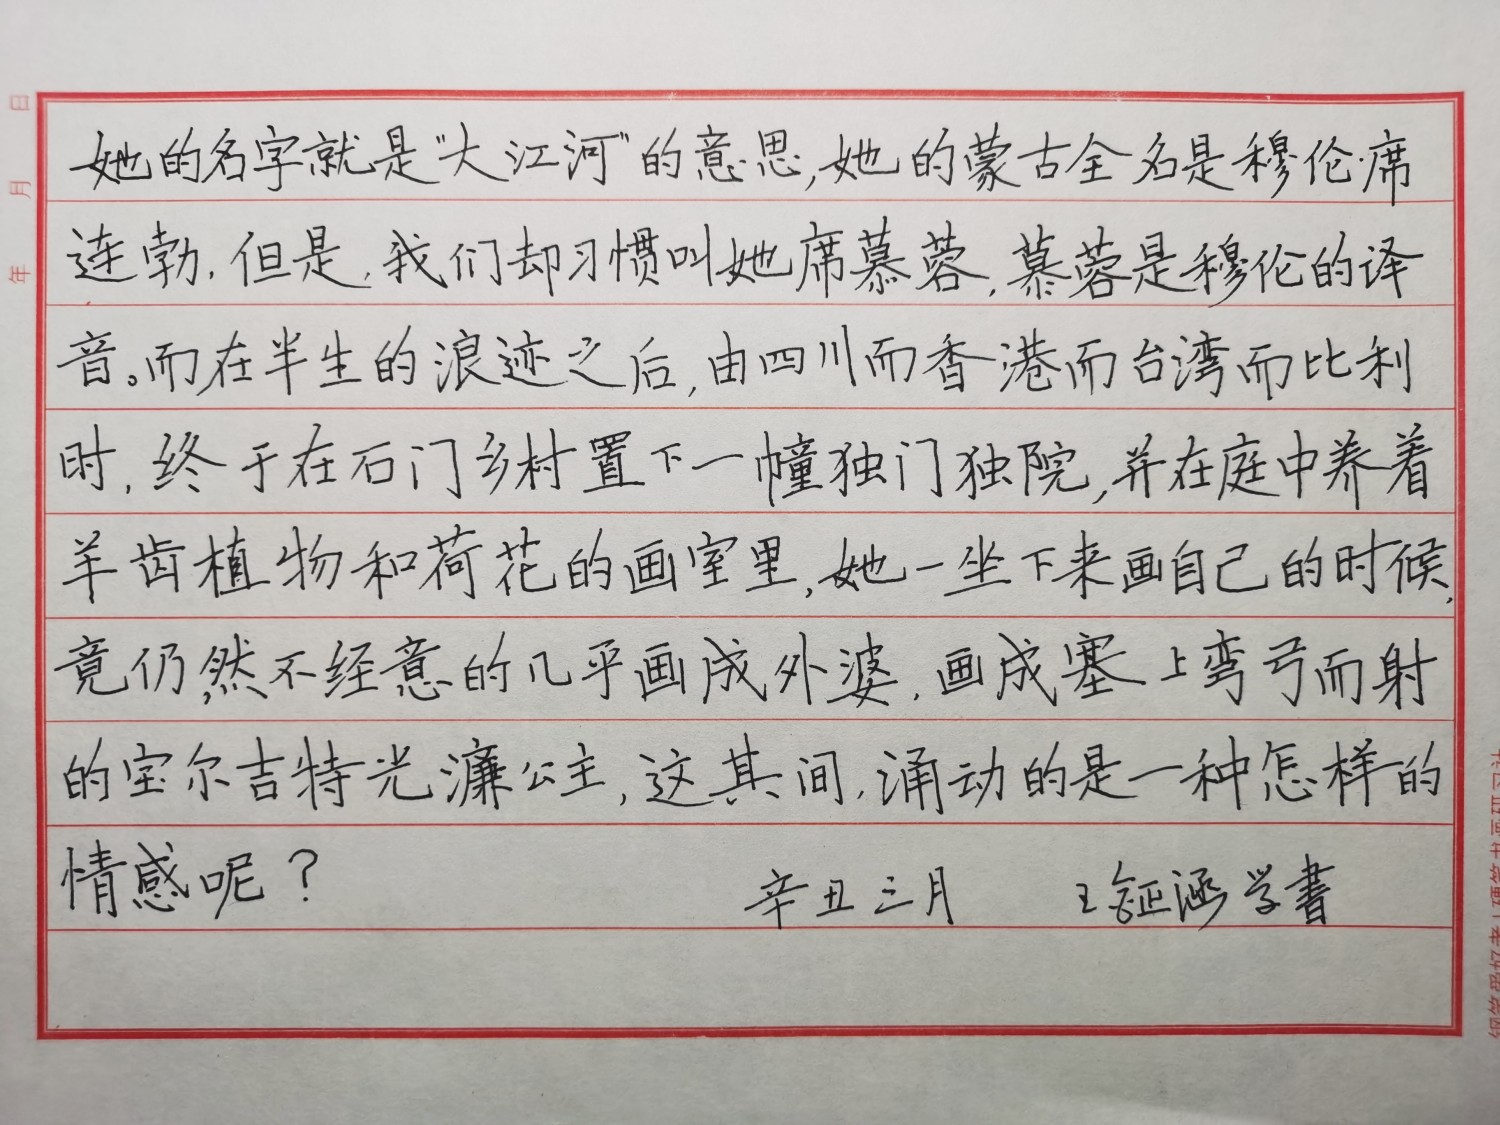 她的名字就是“大江河”的意思,她的蒙古全名是穆伦·席
连勃.但是,我们却习惯叫她席慕蓉,慕蓉是穆伦的译
音。而在半生的浪迹之后,由四川而香港而台湾而比利
时,终于在石门乡村置下一幢独门独院,并在庭中养着
羊齿植物和荷花的画室里,她一坐下来画自己的时候,
竟仍然不经意的几乎画成外婆,画成塞上弯弓而射
的宝尔吉特光濂公主,这其间,涌动的是一种怎样的
情感呢?
辛丑三月 王钲涵学書
年 月 日